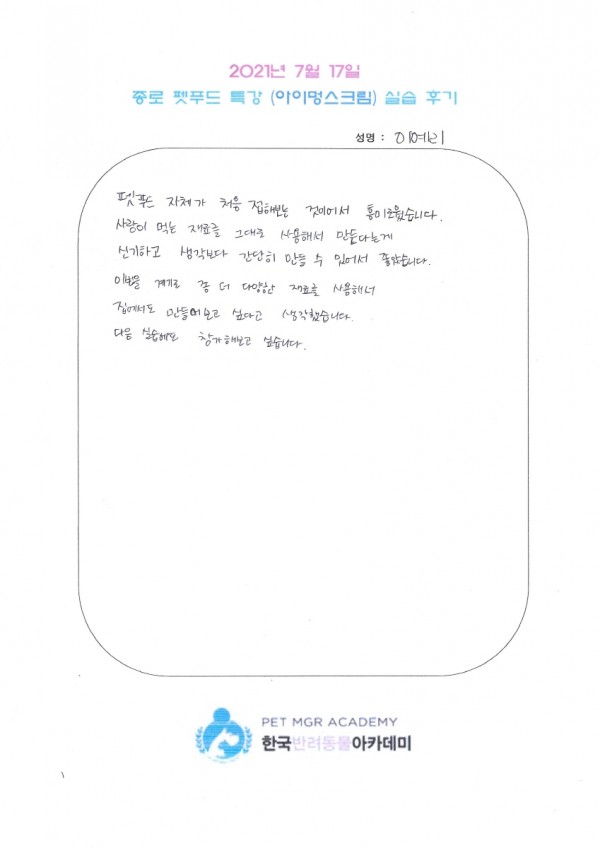 2021년 7월 17일
종로 펫푸드 특강 (아이멍스크림) 실습 후기
성명 : 이예리
펫푸드 자체가 처음 접해보는 것이어서 흥미로웠습니다.
사람이 먹는 재료를 그대로 사용해서 만든다는게
신기하고 생각보다 간단히 만들 수 있어서 좋았습니다.
이번을 계기로 좀 더 다양한 재료를 사용해서
집에서도 만들어보고 싶다고 생각했습니다.
다음 실습에도 참가해보고 싶습니다.
PET MGR ACADEMY
한국반려동물아카데미